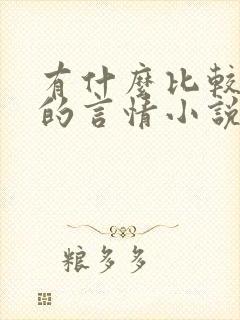 有什麼比較
的言情小說
粮多多